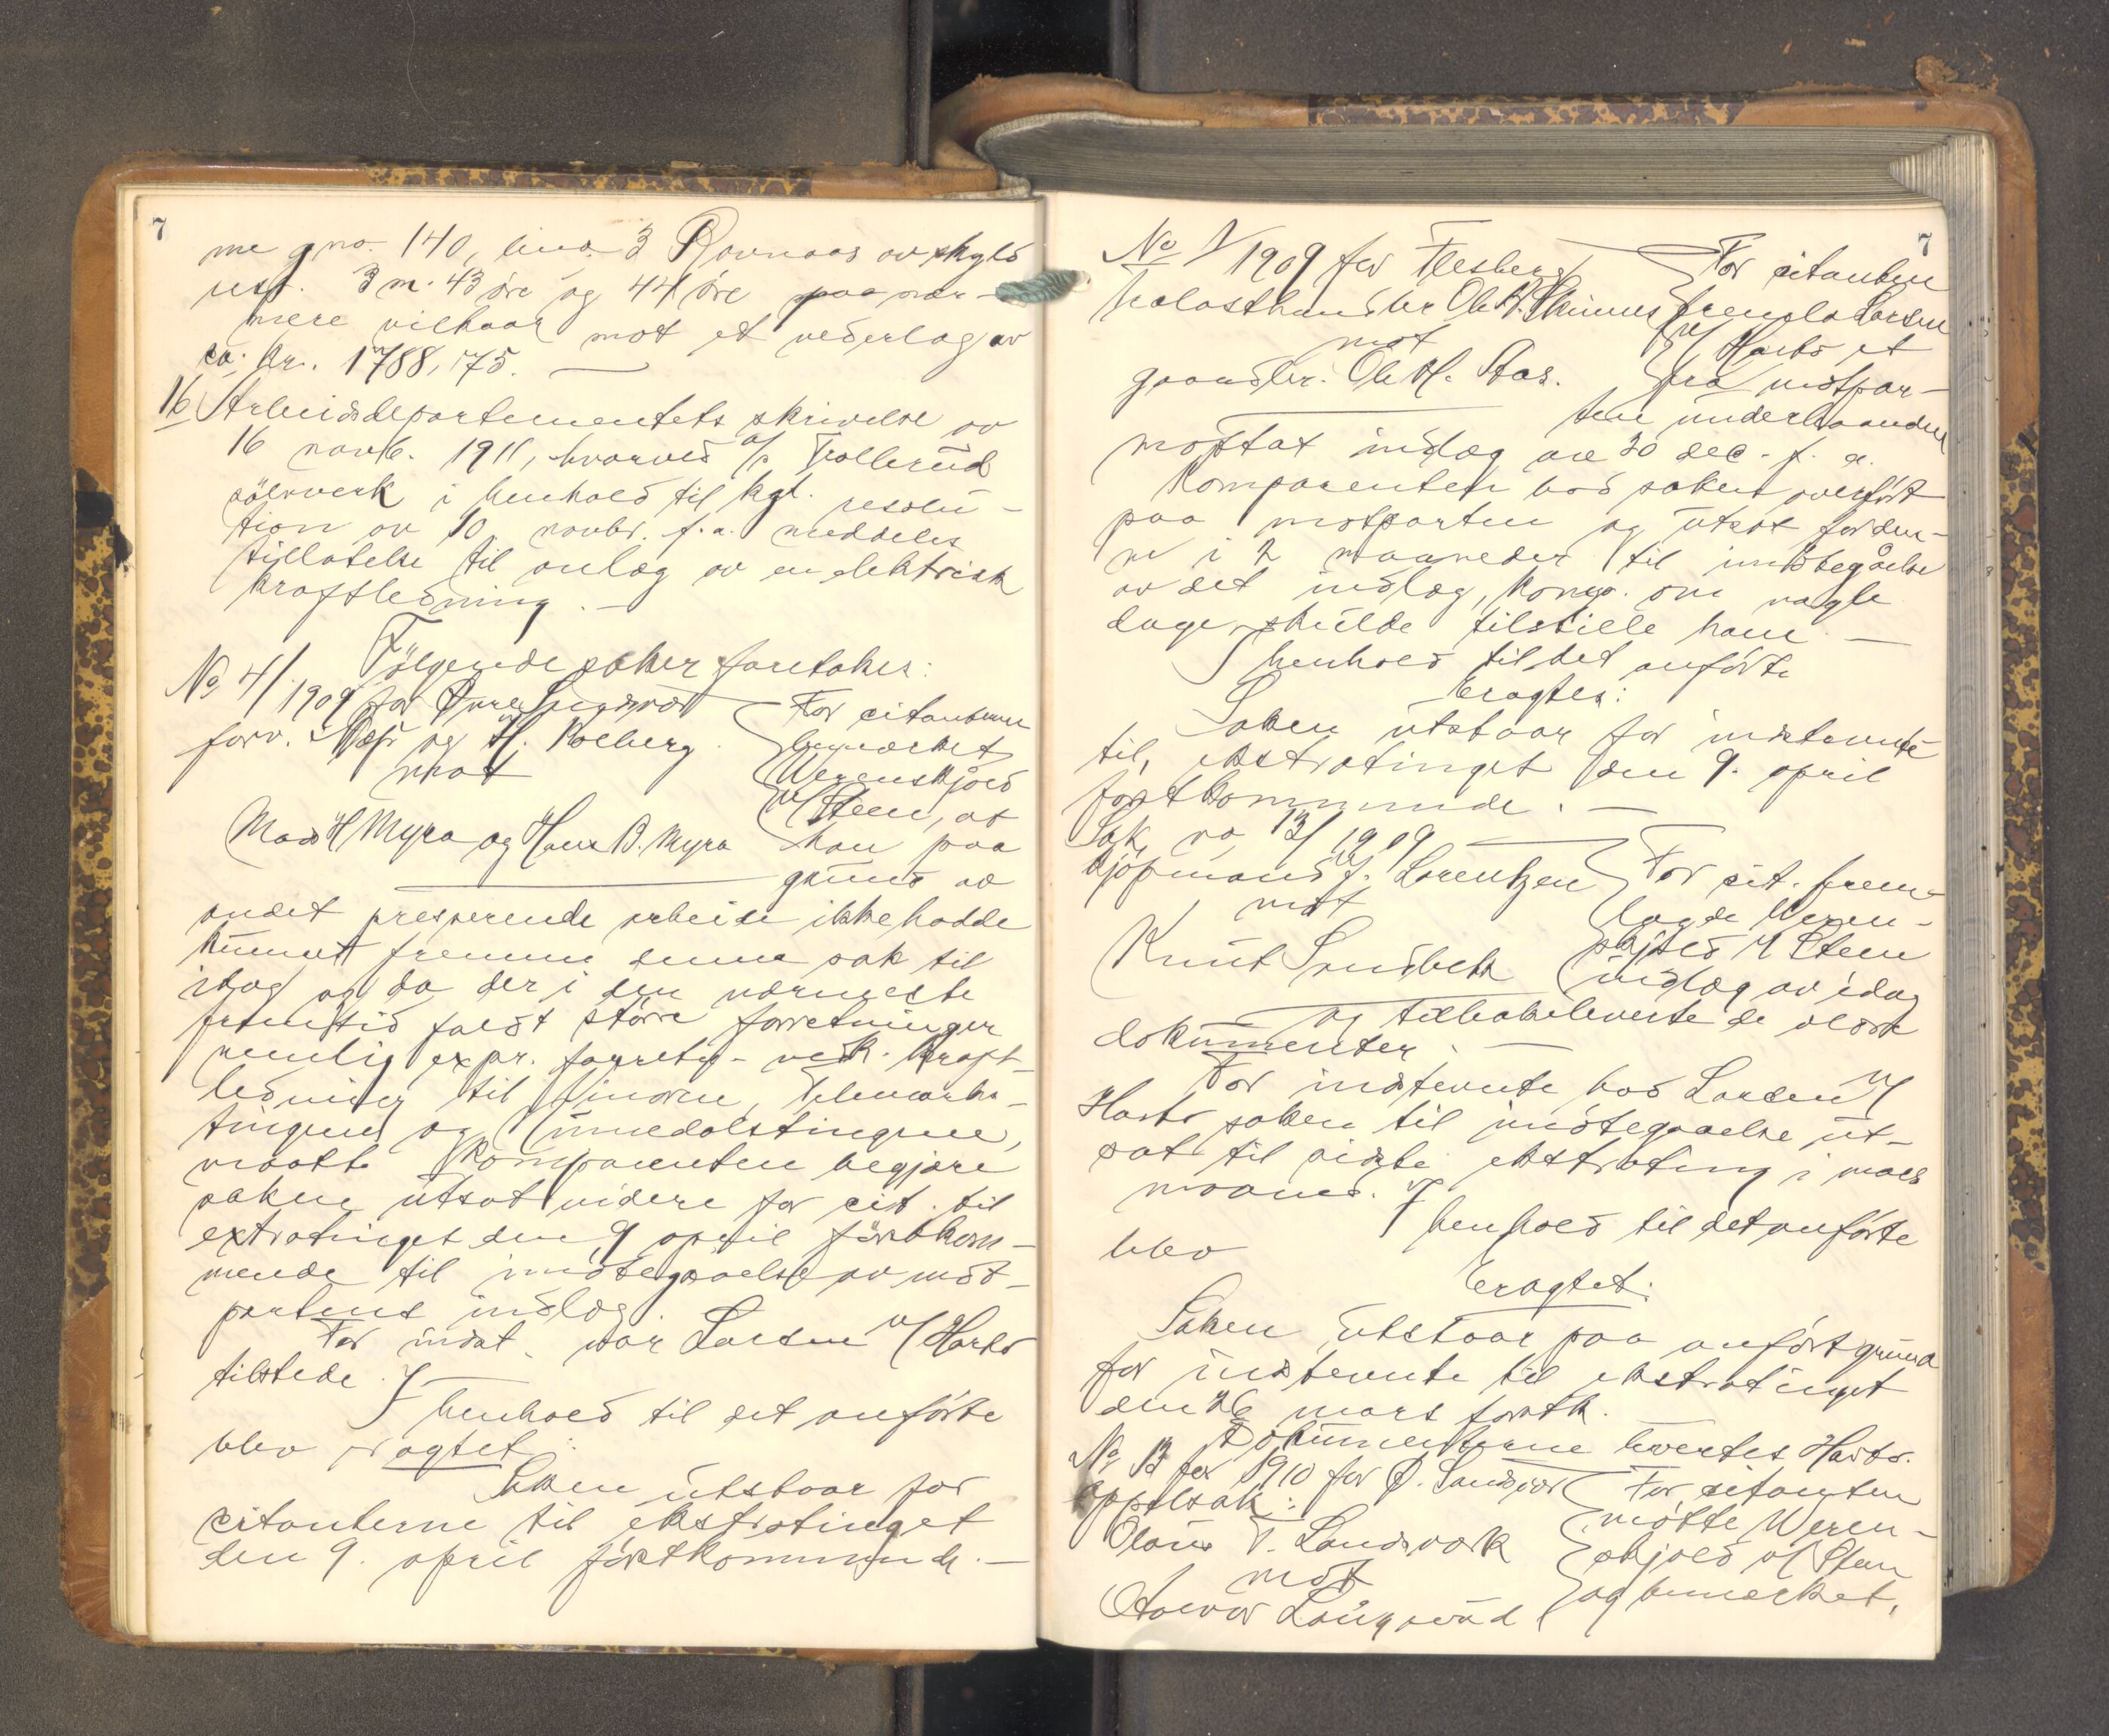 7
me gno. 140, bno. 3 Ravnaas av skyld
resp. 3 m. 43 øre og 44 øre paa nær-
mere vilkaar mot et vederlag av
ca. kr. 1788,75.
16 Arbeidsdepartementets skrivelse av
16 novb. 1911, hvorved a/s Trollerud
sölvverk i henhold til kgl. resolu-
tion av 10 novbr. f.a. meddeles
tillatelse til anlæg av en elektrisk
kraftledning. -
Følgende saker foretakes:
No 4/1909 for Øvre Sandsvær
forv. og H. Boeberg
mot
Mads H Myra og Hans B. Myra
For citanterne
bemærket
Werenskjold
v/ Steen, at
han paa
grund av
andet presserende arbeide ikke hadde
kunnet fremme denne sak til
idag og da der i den nærmeste
fremtid faldt större forretninger
nemlig expr. forretn. vedk. kraft-
ledning til , Telemarks-
tingene og Numedalstingene,
maatte komparenten begjære
saken utsat videre for cit. til
extratinget den 9 april förstkom-
mende til imötegaaelse av mot-
partens indlæg.
For indst. var Larsen v/ Harbo
tilstede.
I henhold til det anförte
blev eragtet:
Saken utstaar for
citanterne til ekstratinget
den 9. april förstkommende. -
7
No 1/1909 for Flesberg
trælasthandler Ole
mot
gaardbr. Ole H. Aas.
For citanten
fremla Larsen
v/ Harbo et
fra motpar-
ten underhaanden
mottat indlæg av 20 dec. f. a.
Komparenten bad saken overfört
paa motparten og utsat for den-
ne i 2 maaneder til imötegåelse
av det indlæg, komp. om nogle
dage skulde tilstille ham. -
I henhold til det anförte
Eragtes:
Saken utstaar for indstevnte
til ekstratinget den 9. april
förstkommende. -
Sak no 13/1909
Kjøpmand J. Lorentzen
mot
Knut Sundbek
For cit. frem-
lagde Weren-
skjold v/ Steen
indlæg av idag
og tilbakeleverte de utlånte
dokumenter. -
For indstevnte bad Larsen v/
Harbo saken til imötegaaelse ut-
sat til sidste ekstrating i mars
maaned. I henhold til det anförte
blev
Eragtet:
Saken utstaar paa anfört grund
for indstevnte til ekstratinget
den 26 mars förstk.
Dokumenterne levertes Harbo.
No 13 for 1910 for Ø. Sandsvær
appelsak:
Olaus T. Landsverk
mot
Halvor Laugerud
For citanten
mötte Weren-
skjold v/ Steen
og bemerket,